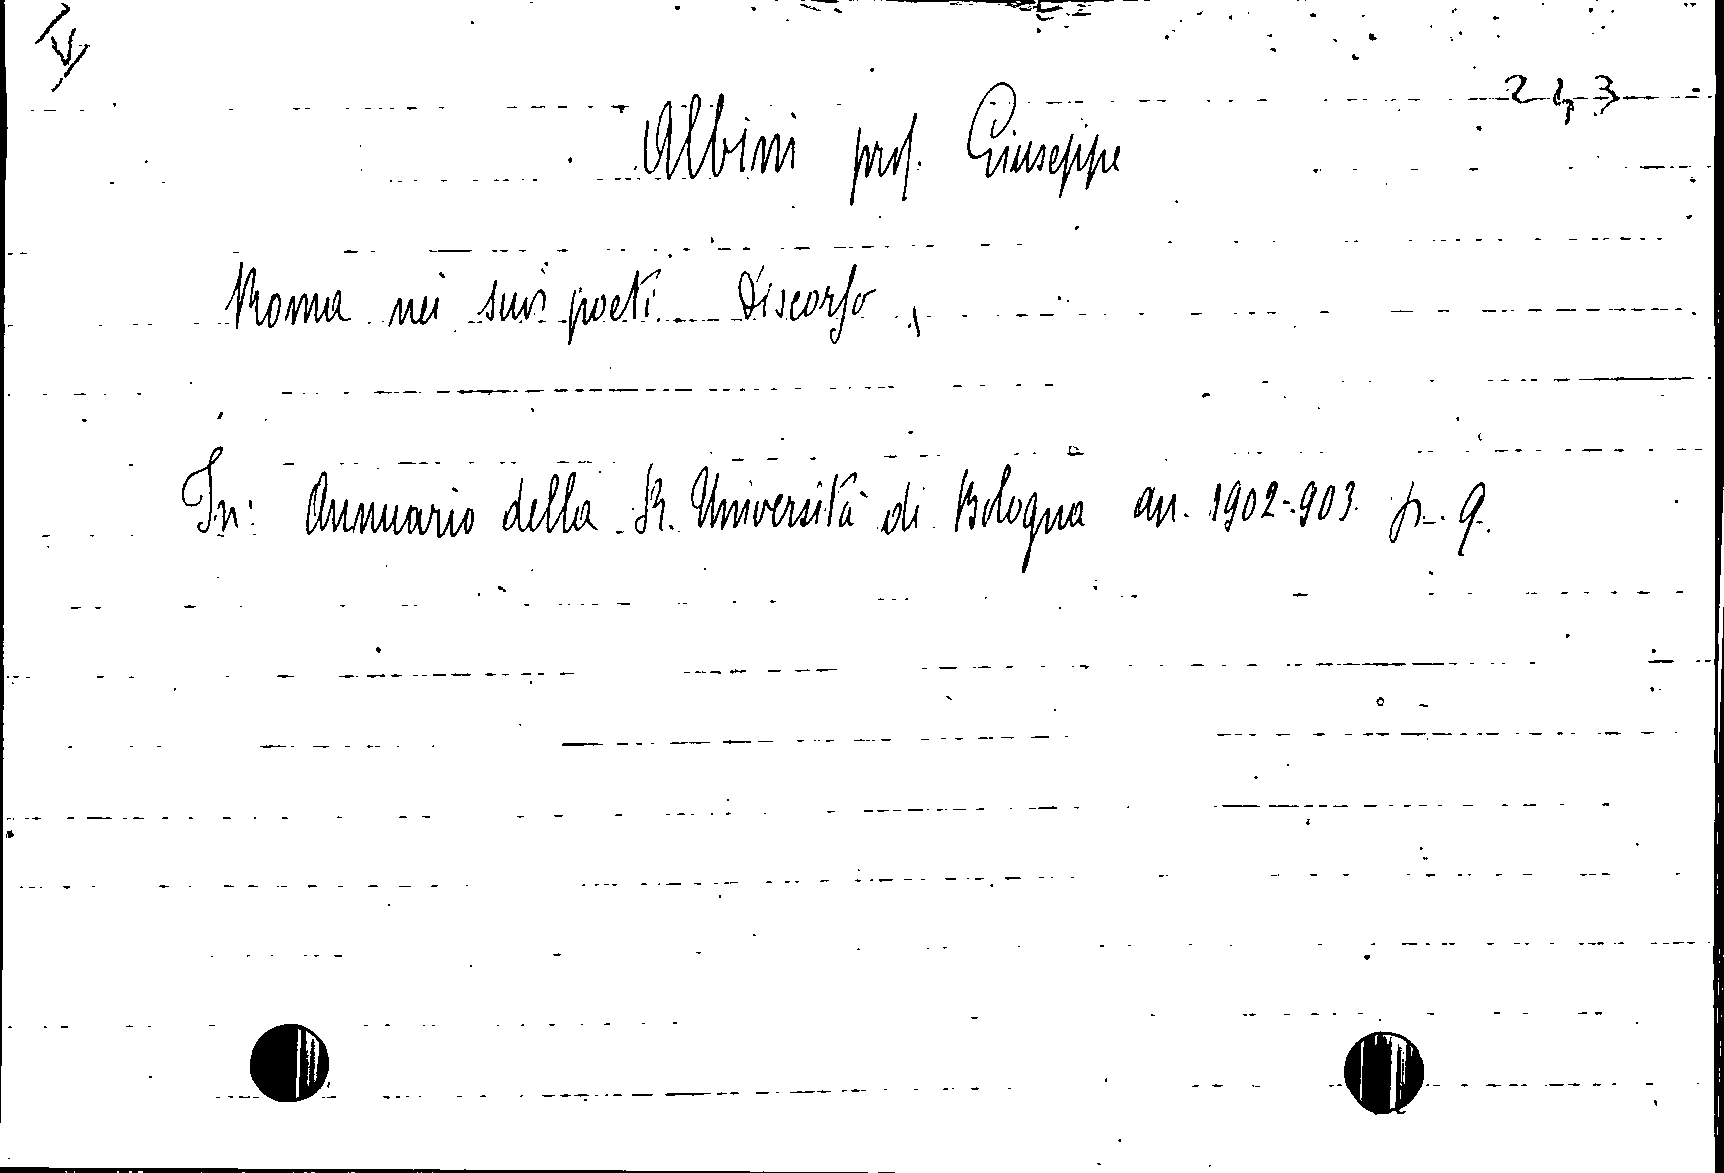 IV
243
Albini prof. Giuseppe
Roma nei suoi poeti. Discorso.
In: Annuario della R. Università di Bologna an. 1902-903. p. 9.